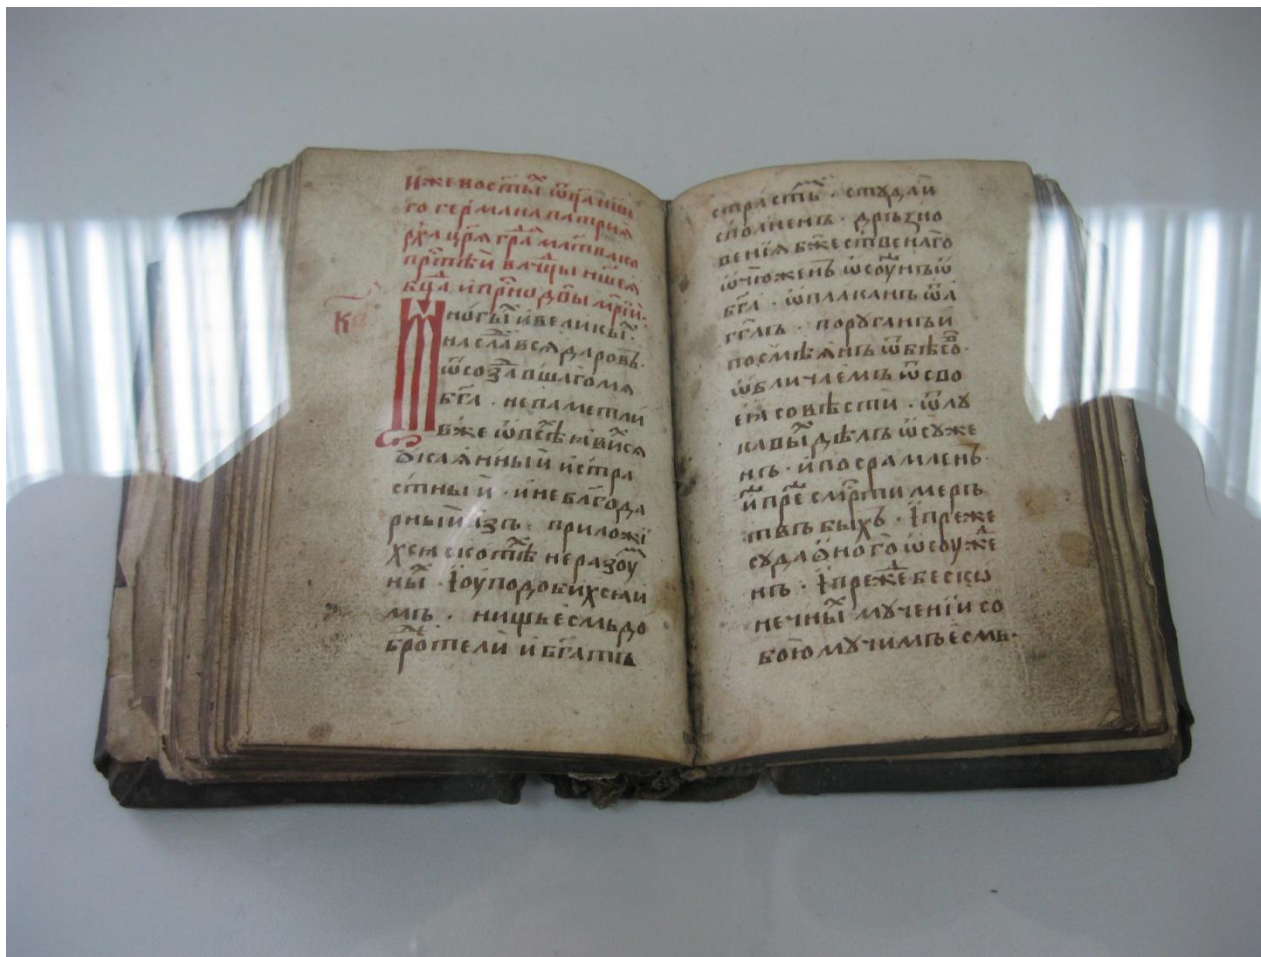 иже во ст҃ы ѿца на́ше
го германа патриа
рха цр҃ѧ гра́да мл҃тва ко
прⷭ҇тѣй влⷣчцы нш҃еѧ
бцⷣа, и прⷭ҇но дв҃ы мр҃і́и·
Мно́гы и вели́кы·
насла́всѧ даровъ·
ѿ созда́вшаго мѧ
бг҃а · непаметли
в же
ѻ҆каѧнны́й и стра
стны́й · и небл҃года
рны́й а́зъ · приложі́
хсѧ ското́мъ неразоу
ны́ · і оуподо́бихсѧ и
мъ · нищь е́смь до
бродѣтели и бг҃атъ
страстьмѝ · студа и
сполненъ · дръзно
ве́нїѧ бж҃ественаго
ѿчюженъ
бг҃а · ѡплаканъ ѿ а
гг҃лъ · поруганъ и
посмѣѧнъ ѿ бѣсо́въ·
ѡбличаемъ ѿ сво
еѧ совѣсти · ѿ лу
кавы́ дѣлъ ѡсуже
нъ · и посрамленъ·
и пре́ смр҃ти мерт
твъ бы́хъ · і преже
суда ѻно́го ѡсоу́жⷣе
нъ · і преже беско
нечны́ муче́нїи со
бою мучимъ е́смь·
К